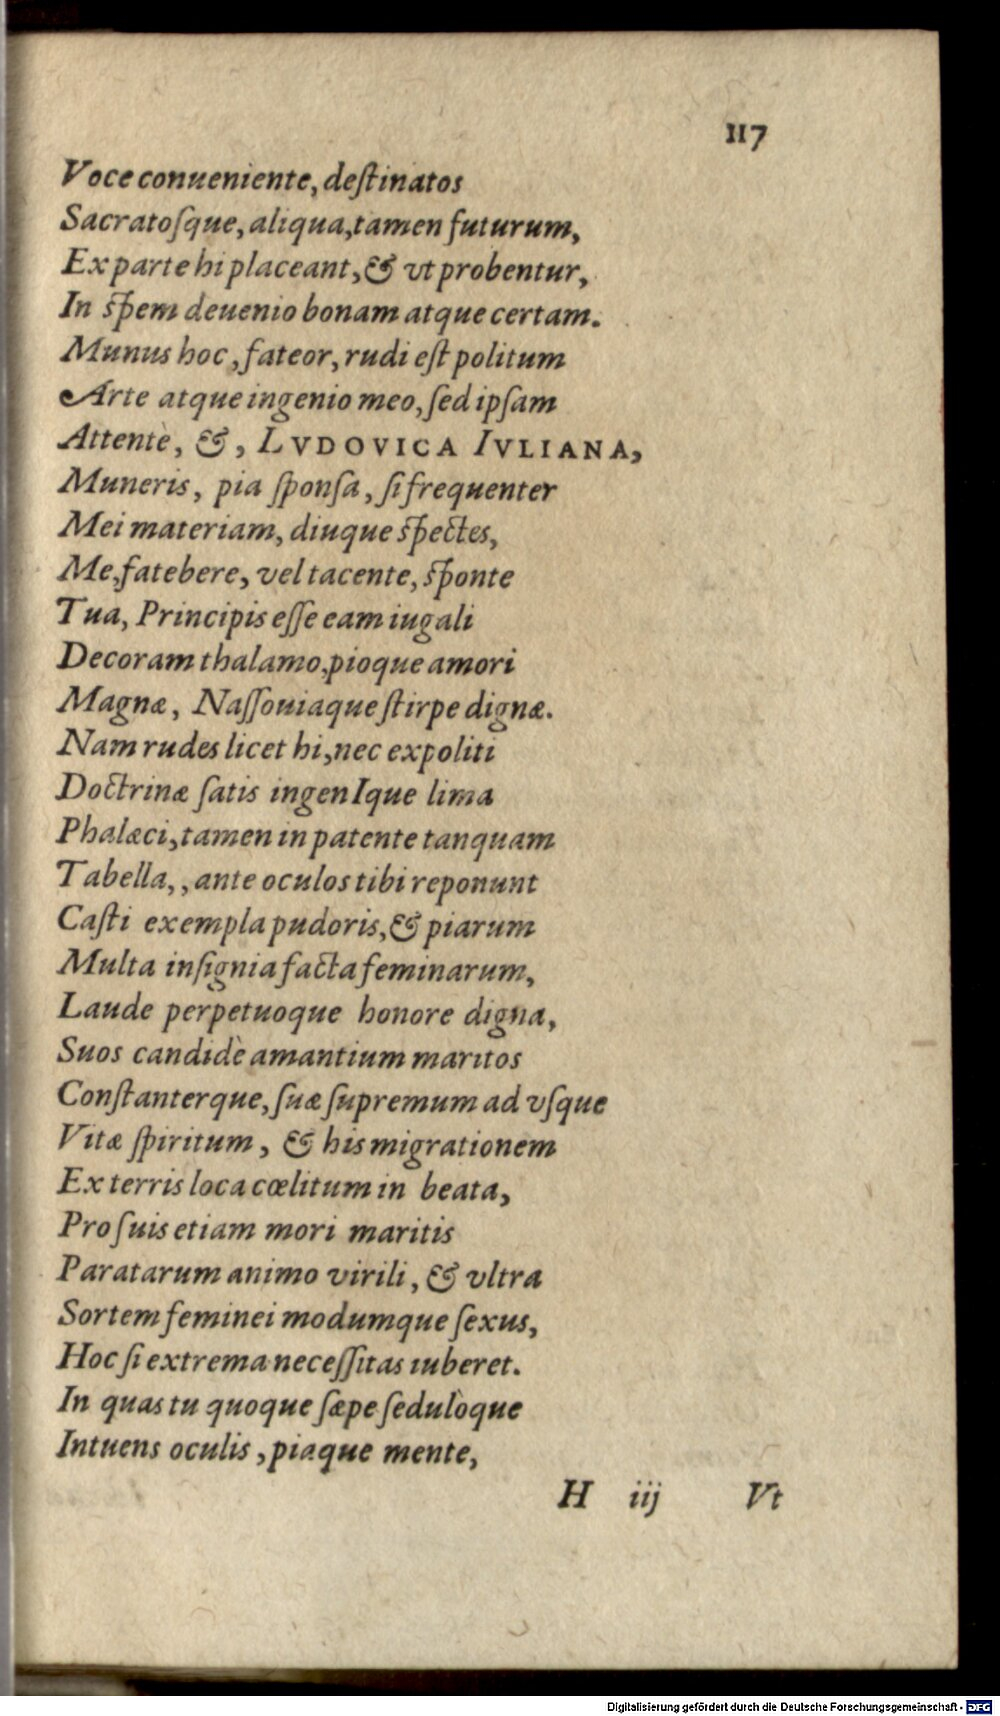 117
Voce conueniente, deſtinatos
Sacratoſque, aliqua, tamen futurum,
Ex parte hi placeant, & vt probentur,
In ſpem deuenio bonam atque certam.
Munus hoc, fateor, rudi eſt politum
Arte atque ingenio meo, ſed ipſam
Attentè, &, LVDOVICA IVLIANA,
Muneris, pia ſponſa, ſi frequenter
Mei materiam, diuque ſpectes,
Me, fatebere, vel tacente, ſponte
Tua, Principis eſſe eam iugali
Decoram thalamo, pioque amori
Magnæ, Naſſouiaque ſtirpe dignæ.
Nam rudes licet hi, nec expoliti
Doctrinæ ſatis ingenIque lima
Phalæci, tamen in patente tanquam
Tabella,, ante oculos tibi reponunt
Caſti exempla pudoris, & piarum
Multa inſignia facta feminarum,
Laude perpetuoque honore digna,
Suos candidè amantium maritos
Conſtanterque, ſuæ ſupremum ad vſque
Vitæ ſpiritum, & his migrationem
Ex terris loca cœlitum in beata,
Pro ſuis etiam mori maritis
Paratarum animo virili, & vltra
Sortem feminei modumque ſexus,
Hoc ſi extrema neceſſitas iuberet.
In quas tu quoque ſæpe ſedulòque
Intuens oculis, piaque mente,
H iij Vt
Digitalisierung gefördert durch die Deutsche Forschungsgemeinschaft - DFG